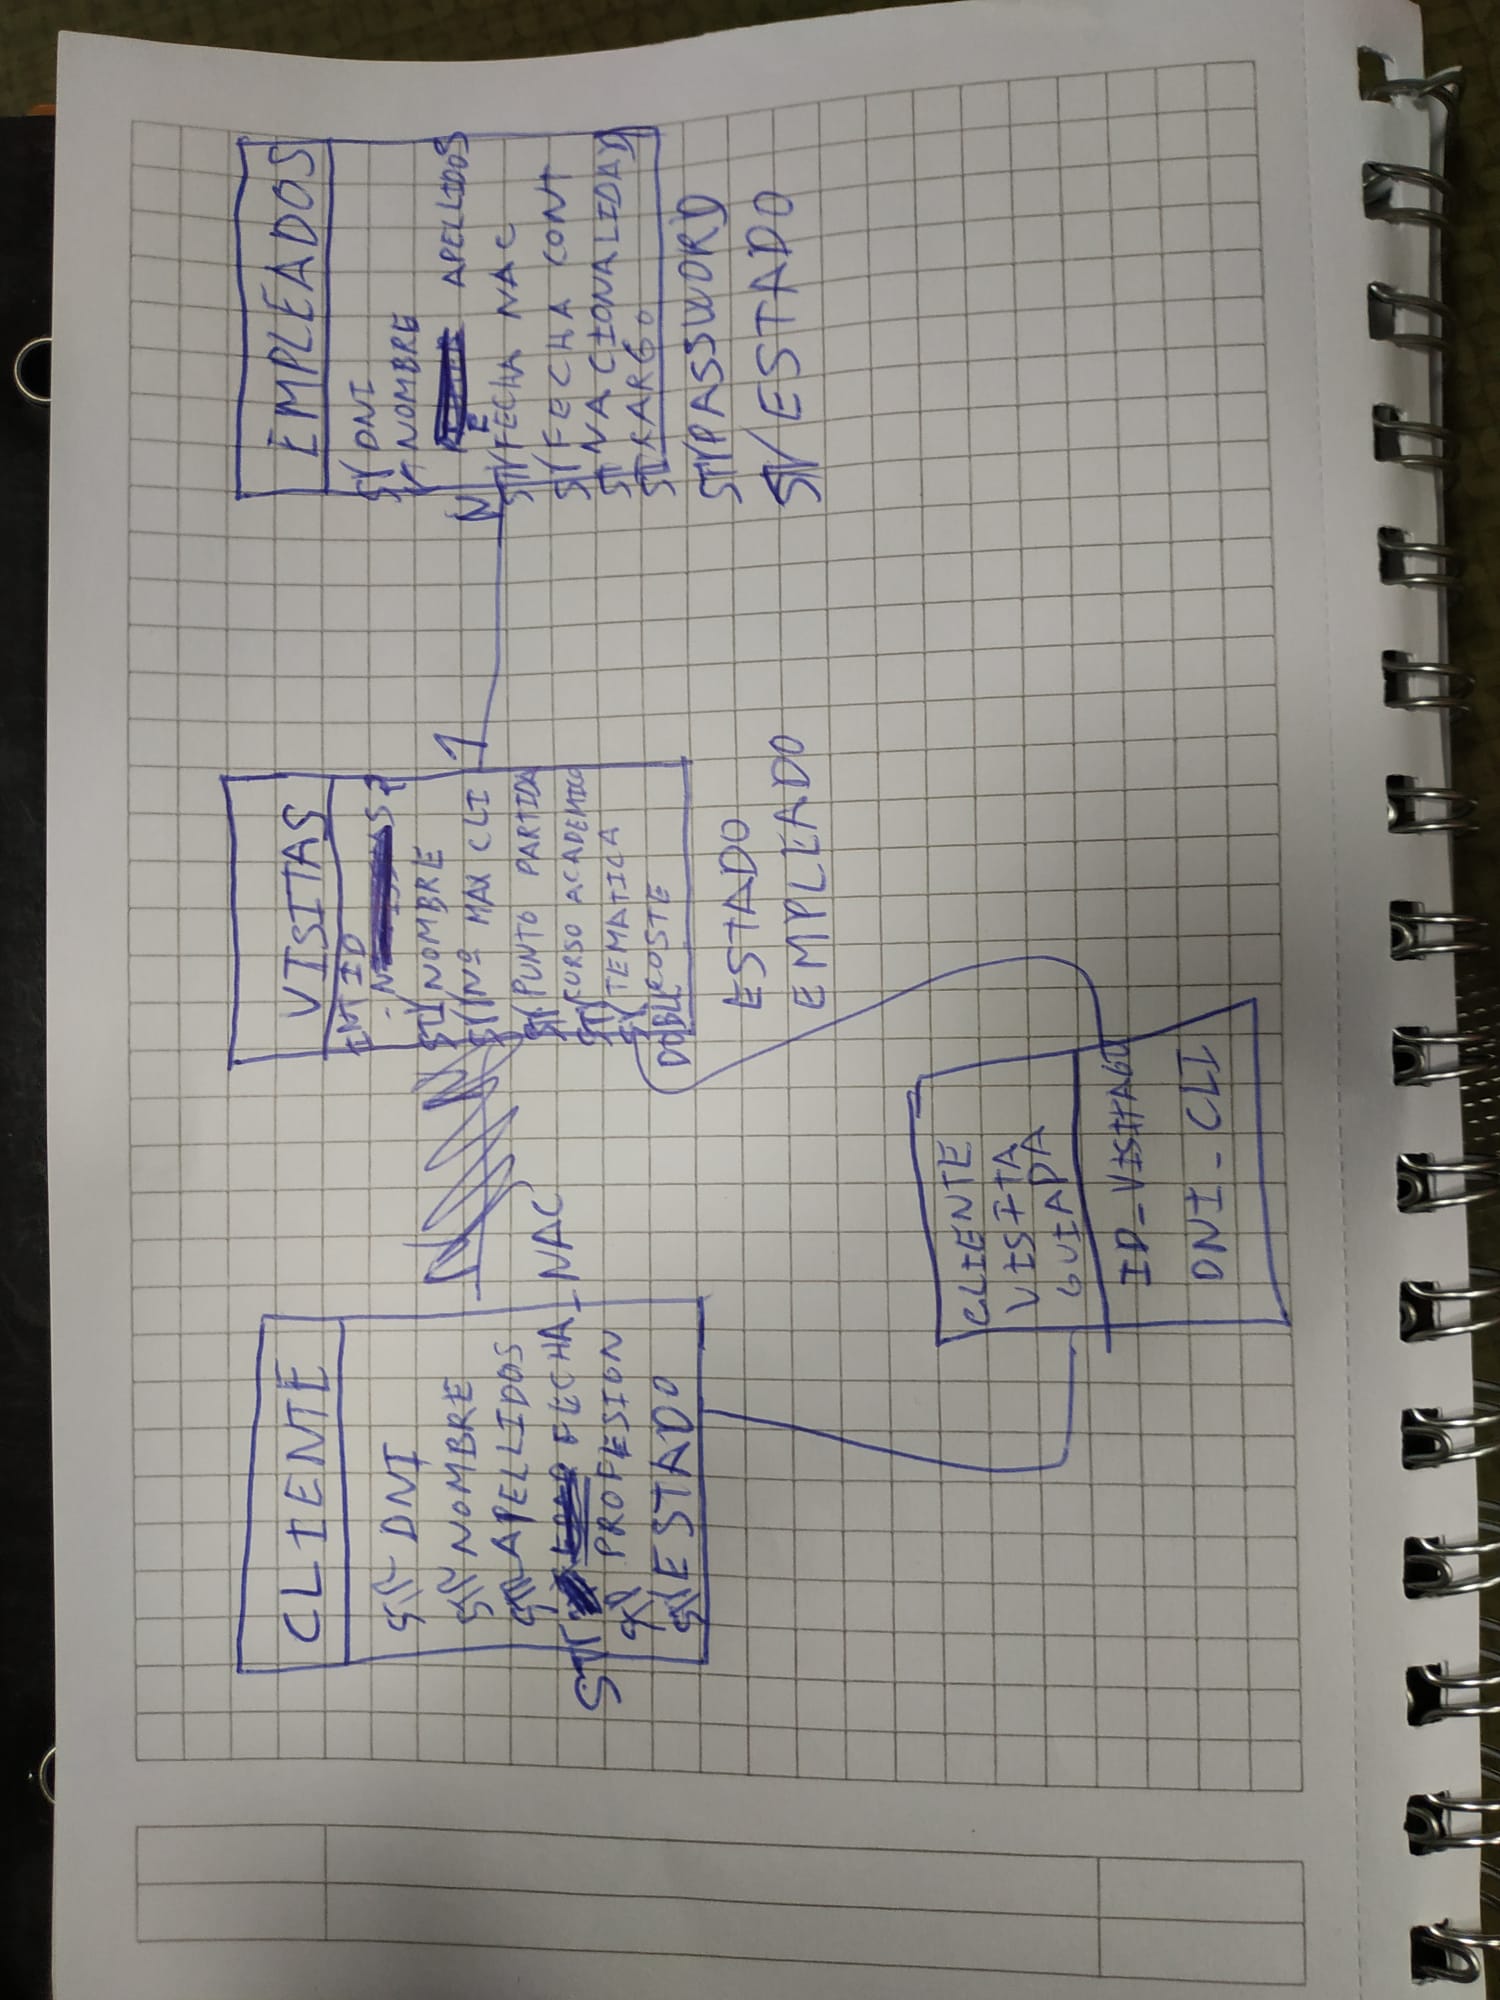 CLIENTE
ST/ DNI
ST/ NOMBRE
ST/ APELLIDOS
ST/ FECHA_NAC
ST/ PROFESION
ST/ ESTADO
VISITAS
INT ID
ST/ NOMBRE
ST/ Nº MAX CLI
ST/ PUNTO PARTIDA
ST/ CURSO ACADEMICO
ST/ TEMATICA
DOBLE COSTE
ESTADO
EMPLEADO
1
N
EMPLEADOS
ST/ DNI
NOMBRE
APELLIDOS
ST/ FECHA NAC
ST/ FECHA CONT
ST/ NACIONALIDAD
ST/ CARGO
ST/ PASSWORD
ST/ ESTADO
CLIENTE
VISITA
GUIADA
ID_VISITAGU
DNI_CLI